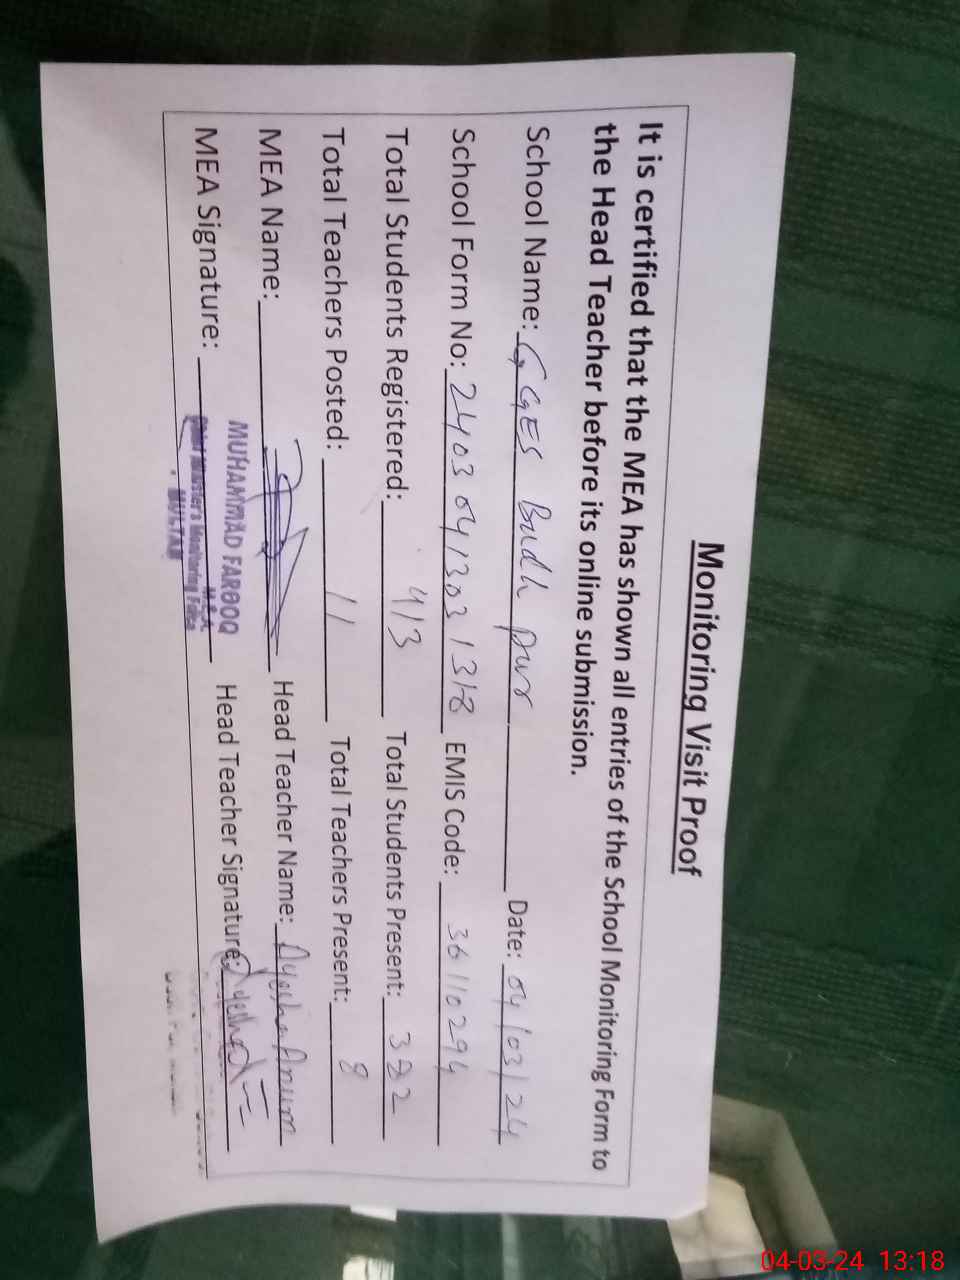 Monitoring Visit Proof
It is certified that the MEA has shown all entries of the School Monitoring Form to
the Head Teacher before its online submission.
School Name: GGES Budh pur Date: 04/03/24
School Form No: 24030413031318 EMIS Code: 36110294
Total Students Registered: 413 Total Students Present: 322
Total Teachers Posted: 11 Total Teachers Present: 8
MEA Name: Head Teacher Name: Ayesha Anum
MEA Signature: Head Teacher Signature: Ayesha
MUHAMMAD FAROOQ
M.E.A
Chief Minister's Monitoring Force
MULTAN
04-03-24 13:18